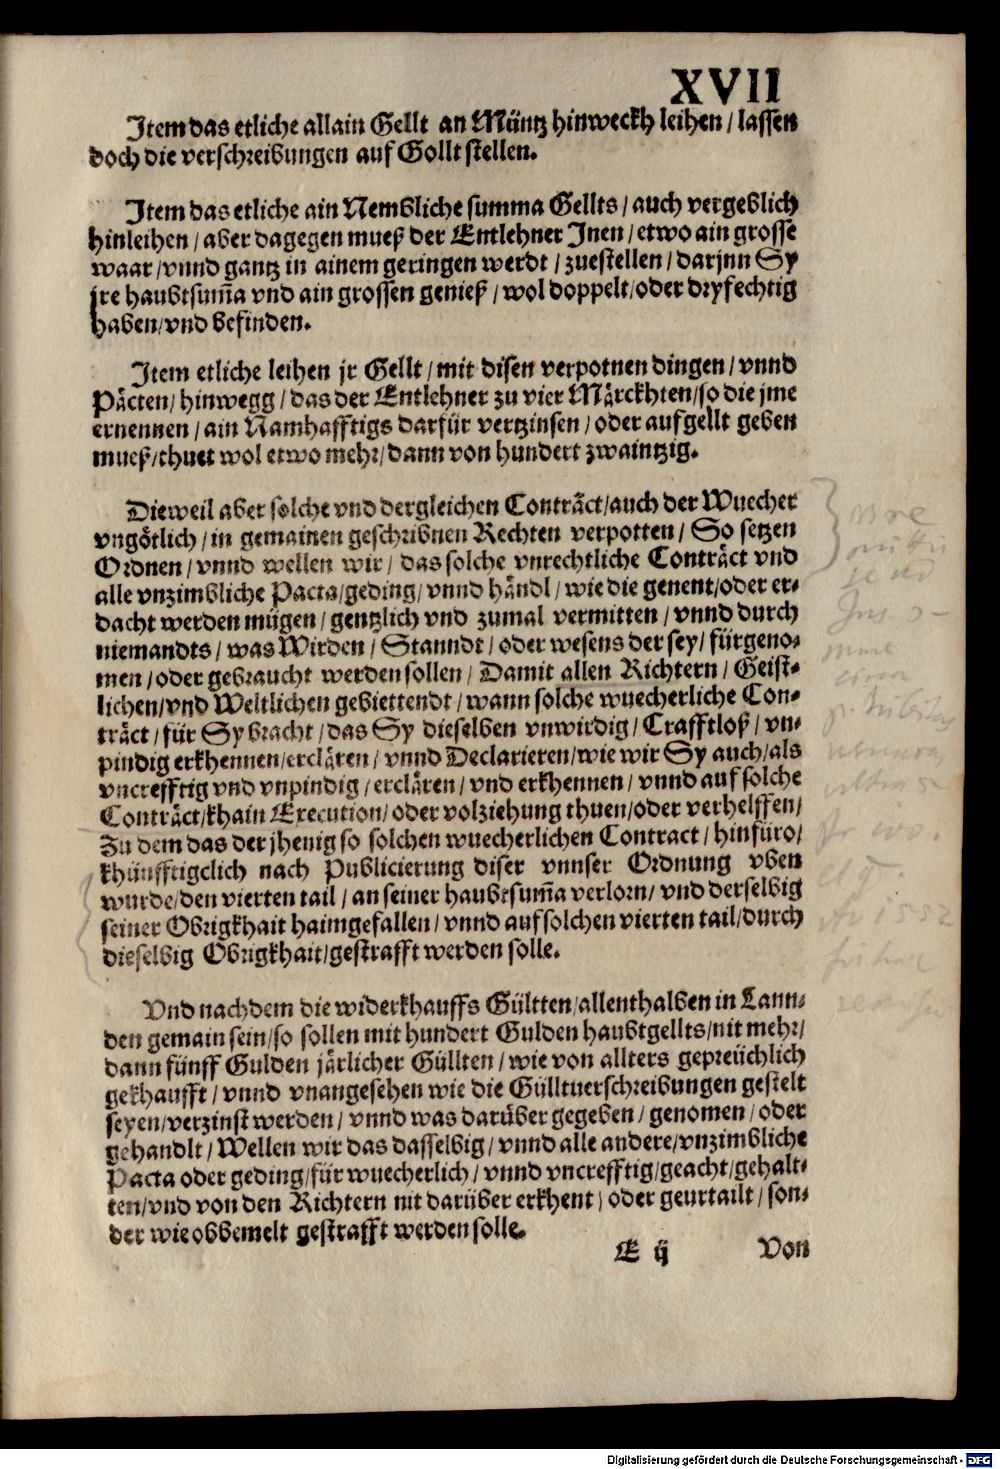 XVII
Item das etliche allain Gellt an Müntz hinweckh leihen / lassen
doch die verschreibungen auf Gollt stellen.
Item das etliche ain Nembliche summa Gellts / auch vergeblich
hinleihen / aber dagegen mueß der Entlehner Inen / etwo ain grosse
waar / vnnd gantz in ainem geringen werdt / zuestellen / darjnn Sy
jre haubtsum̃a vnd ain grossen genieß / wol doppelt / oder dryfechtig
haben / vnd befinden.
Item etliche leihen jr Gellt / mit disen verpotnen dingen / vnnd
Päcten / hinwegg / das der Entlehner zu vier Märckhten / so die jme
ernennen / ain Namhafftigs darfür vertzinsen / oder aufgellt geben
mueß / thuet wol etwo mehr / dann von hundert zwaintzig.
Dieweil aber solche vnd dergleichen Conträct / auch der Wuecher
vngötlich / in gemainen geschribnen Rechten verpotten / So setzen
Ordnen / vnnd wellen wir / das solche vnrechtliche Conträct vnd
alle vnzimbliche Pacta / geding / vnnd händl / wie die genent / oder er-
dacht werden mügen / gentzlich vnd zumal vermitten / vnnd durch
niemandts / was Wirden / Stanndt / oder wesens der sey / fürgeno-
men / oder gebraucht werden sollen / Damit allen Richtern / Geist-
lichen / vnd Weltlichen gebiettendt / wann solche wuecherliche Con-
träct / für Sy bracht / das Sy dieselben vnwirdig / Crafftloß / vn-
pindig erkhennen / erclären / vnnd Declarieren / wie wir Sy auch / als
vncrefftig vnd vnpindig / erclären / vnd erkhennen / vnnd auf solche
Conträct / khain Execution / oder volziehung thuen / oder verhelffen /
Zu dem das der jhenig so solchen wuecherlichen Contract / hinfüro /
khünfftigclich nach Publicierung diser vnnser Ordnung vben
wurde / den vierten tail / an seiner haubtsum̃a verlorn / vnd derselbig
seiner Obrigkhait haimgefallen / vnnd auf solchen vierten tail / durch
dieselbig Obrigkhait / gestrafft werden solle.
Vnd nachdem die widerkhauffs Gültten / allenthalben in Lann-
den gemain sein / so sollen mit hundert Gulden haubtgellts / nit mehr /
dann fünff Gulden järlicher Güllten / wie von allters gepreüchlich
gekhaufft / vnnd vnangesehen wie die Gülltuerschreibungen gestelt
seyen / verzinst werden / vnnd was darüber gegeben / genomen / oder
gehandlt / Wellen wir das dasselbig / vnnd alle andere / vnzimbliche
Pacta oder geding / für wuecherlich / vnnd vncrefftig / geacht / gehalt-
ten / vnd von den Richtern nit darüber erkhent / oder geurtailt / son-
der wie obbemelt gestrafft werden solle.
E ij Von
Digitalisierung gefördert durch die Deutsche Forschungsgemeinschaft - DFG